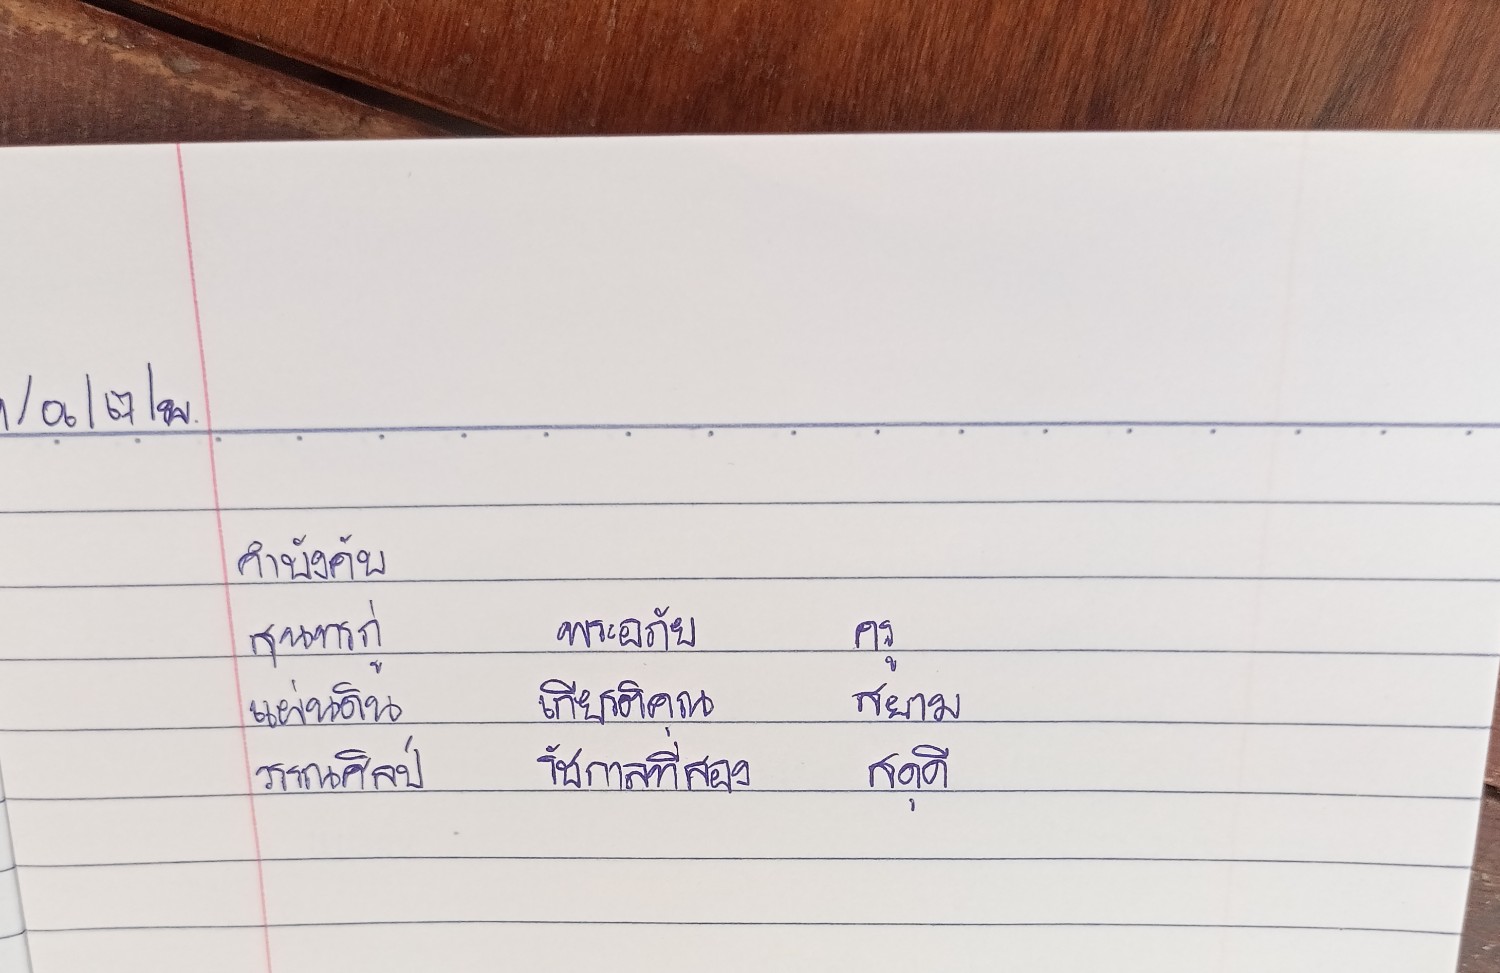 /๐๖/๖๗/
คำบังคับ
สุนทรภู่ พระอภัย ครู
แผ่นดิน เกียรติคุณ สยาม
วรรณศิลป์ รัชกาลที่สอง สดุดี